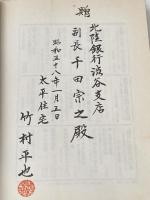 贈
北陸銀行渋谷支店
副長 千田宗之殿
昭和五十八年一月五日
太平住宅
竹村平也